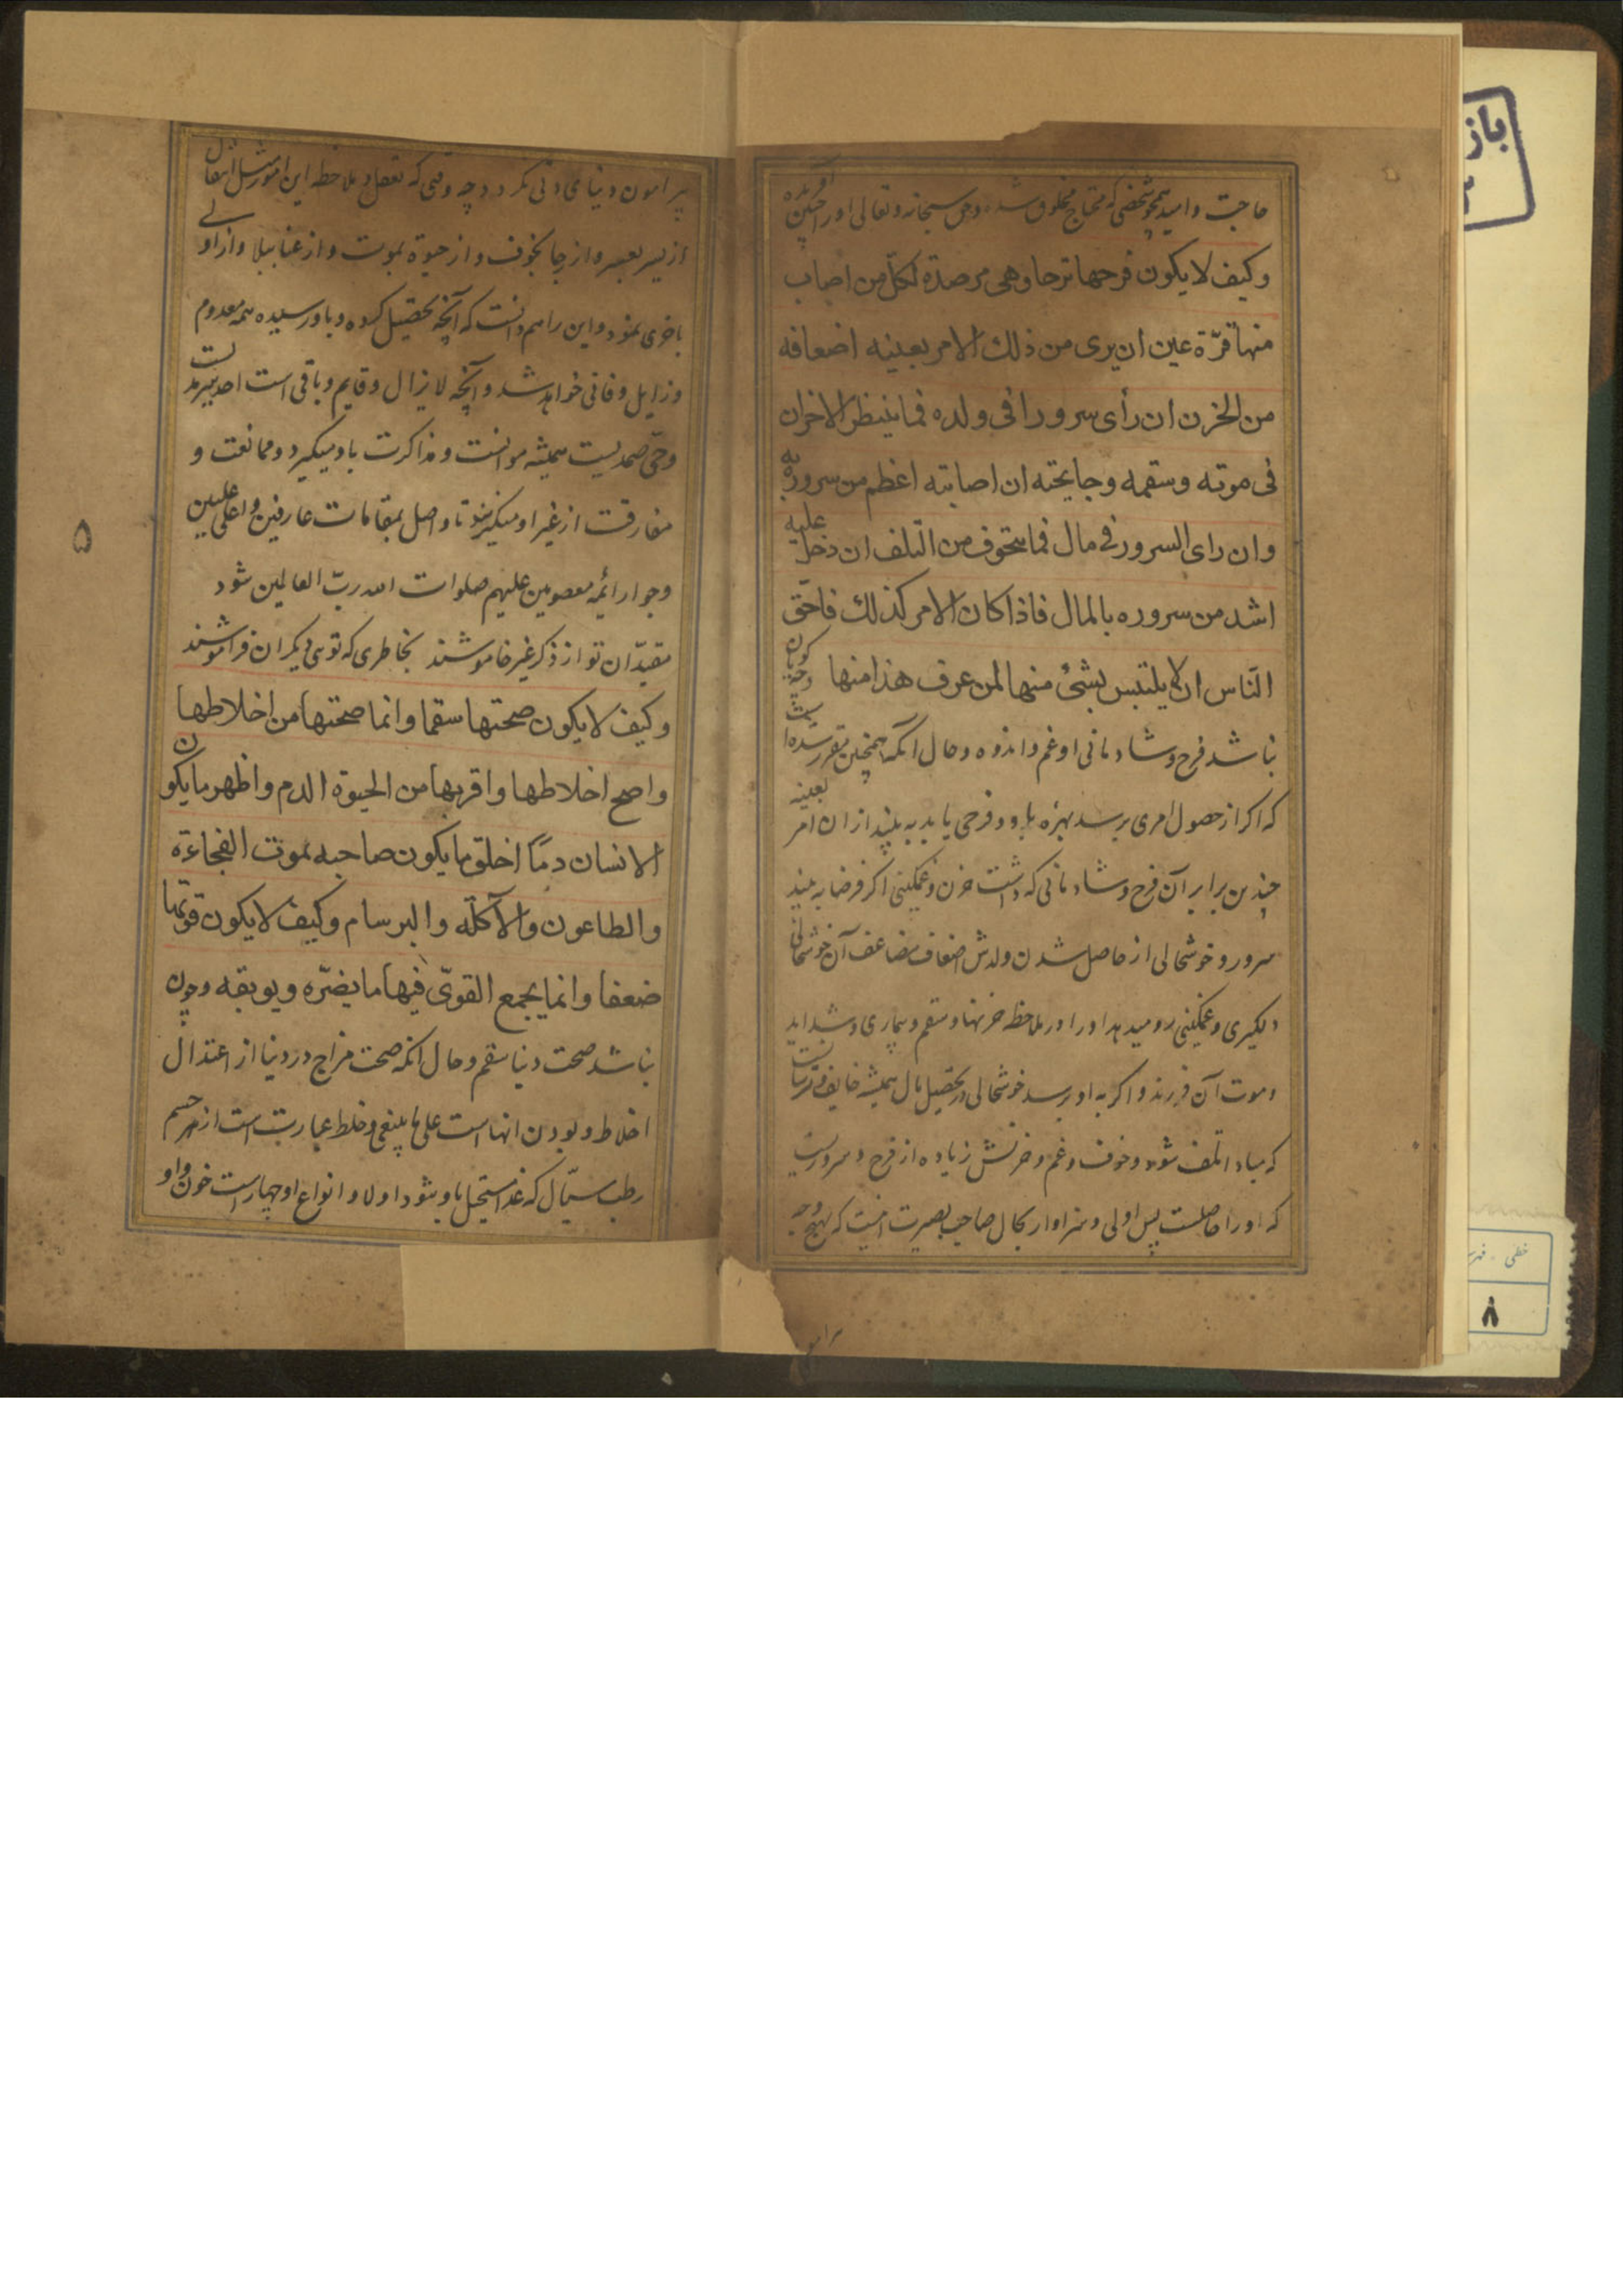 حاجت و امید همچو شخصی که محتاج مخلوق شده و حق سبحانه و تعالی او را چنین آفریده
وکیف لا یکون فرحها ترحا وهی مرصدة لکلّ من اصاب
منها قرّة عین ان یری من ذلك الامر بعینه اضعافه
من الحزن ان رأی سرورا فی ولده فما ینتظر الاحزان
فی موته وسقمه وجایحته ان اصابته اعظم من سروره به
وان رای السرور فی مال فما یتخوف من التّلف ان دخل علیه
اشد من سروره بالمال فاذا کان الامر کذلك فاحقّ
النّاس ان لا یلتبس بشئ منها لمن عرف هذا منها وچگونه
نباشد فرح و شادمانی او غم و اندوه و حال آنکه همچنین مقرر شده است
که اگر از حصول امری برسد بهره باو و فرحی یابد به بیند از ان امر بعینه
چندین برابر آن فرح و شادمانی که داشت حزن و غمگینی اگر فرضا به بیند
سرور و خوشحالی از حاصل شدن ولدش اضعاف مضاعف آن خوشحالی
دلگیری و غمگینی رو میدهد او را در ملاحظه حزنها و سقم و بیماری و شداید
و موت آن فرزند و اگر به او برسد خوشحالی در تحصیل مال همیشه خایف و ترسان است
که مبادا تلف شود و خوف و غم و حزنش زیاده از فرح و سروریست
که او را حاصلست پس اولی و سزاوار بحال صاحب بصیرت اینست که بهیچ وجه
پیرامون دنیای دنی نگردد چه وقتی که تعقل و ملاحظه این امور مثل انتقال
از یسر بعسر و از رجا بخوف و از حیوة بموت و از غنا ببلا و از اولی
باخری نمود و این را هم دانست که آنچه تحصیل کرده و باو رسیده همه معدوم
و زایل و فانی خواهد شد و آنچه لا یزال و قایم و باقی است احدیّت سرمد
و حیّ صمدیست همیشه موانست و مذاکرت باو میگیرد و ممانعت و
مفارقت از غیر او میگیرند تا واصل بمقامات عارفین و اعلی علیین
وجوار ائمه معصومین علیهم صلوات الله ربّ العالمین شود
مقیدان تو از ذکر غیر خاموشند بخاطری که توئی دیگران فراموشند
وکیف لا یکون صحتها سقما وانما صحتها من اخلاطها
واصح اخلاطها واقربها من الحیوة الدم واظهر ما یکون
الانسان دمًا اخلق ما یکون صاحبه بموت الفجاءة
والطاعون والآکلة والبرسام وکیف لا یکون قوتها
ضعفا وانما یجمع القویّ فیها ما یضرّه ویوبقه وچون
نباشد صحت دنیا سقم و حال آنکه صحت مزاج در دنیا از اعتدال
اخلاط و بودن انهاست علی ما ینبغی و خلط عبارتست از هر جسم
رطب سیّال که غذا مستحیل باو بشود اولا و انواع او چهار است خون و او
۵
پیرامو
باز
خطی - فهر
۸